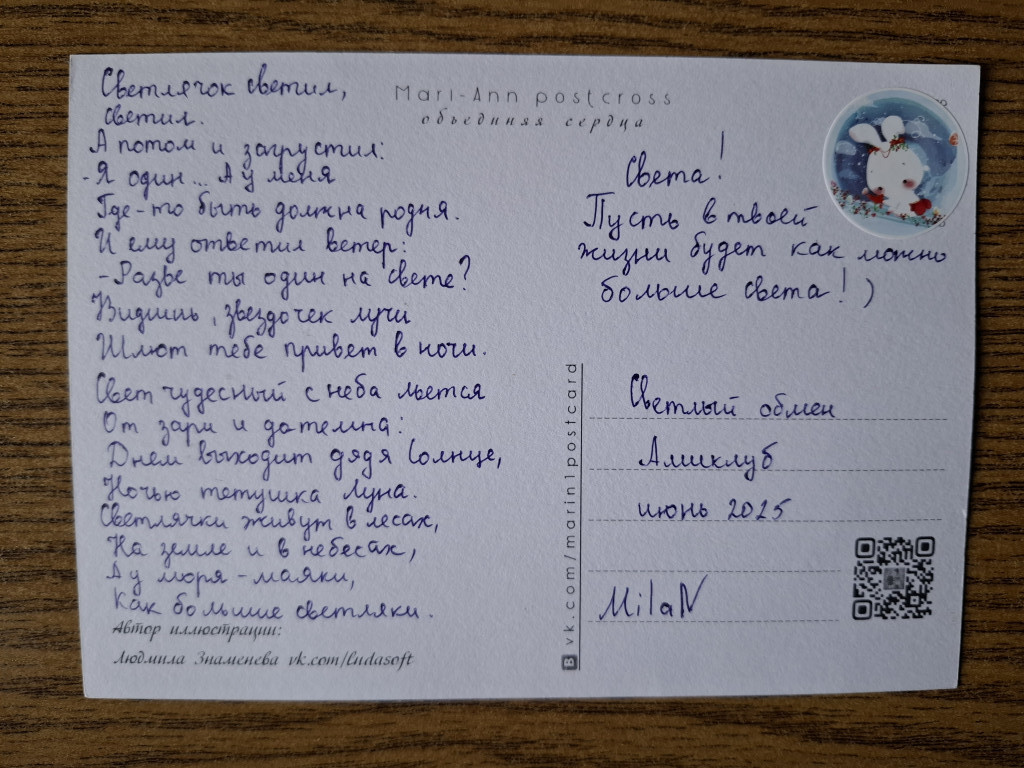 Светлячок светил,
светил.
А потом и загрустил:
- Я один... А у меня
Где-то быть должна родня.
И ему ответил ветер:
- Разве ты один на свете?
Видишь, звездочек лучи
Шлют тебе привет в ночи.
Свет чудесный с неба льется
От зари и до темна:
Днем выходит дядя Солнце,
Ночью тетушка Луна.
Светлячки живут в лесах,
На земле и в небесах,
А у моря - маяки,
Как большие светляки.
Автор иллюстрации:
Людмила Знаменева vk.com/ludasoft
Mari-Ann postcross
объединяя сердца
Света!
Пусть в твоей
жизни будет как можно
больше света! )
vk.com/marin1postcard
Светлый обмен
Амиклуб
июнь 2025
MilaN